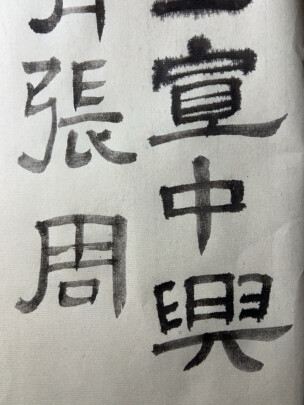 宣中興
張周